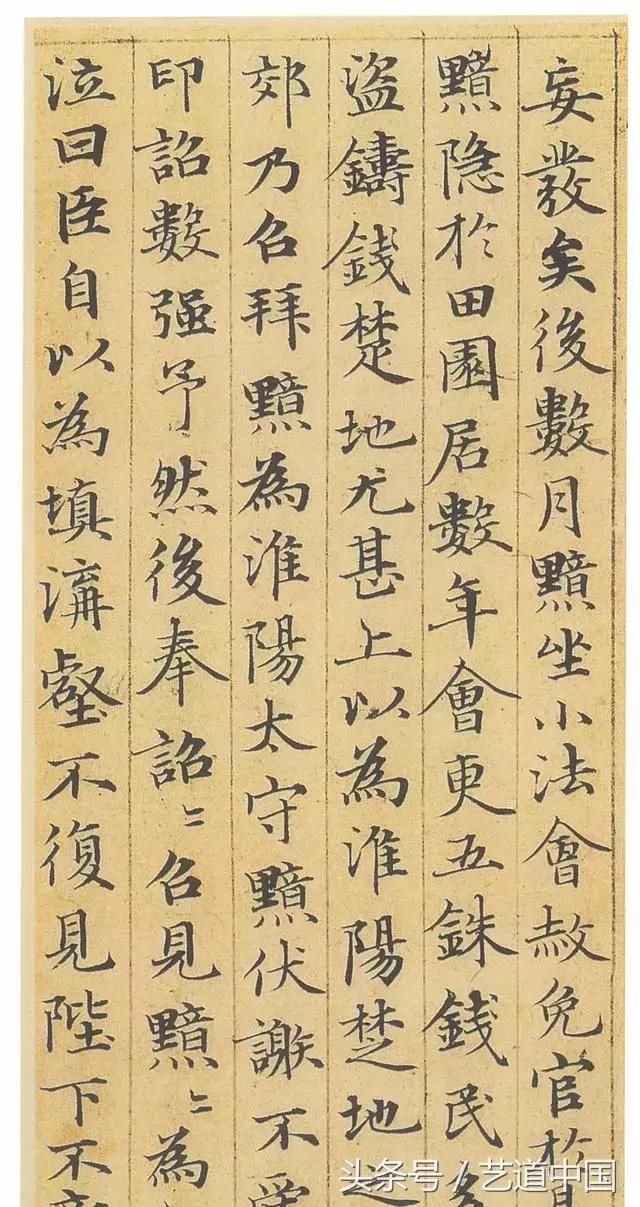 妄發矣後數月黯坐小法會赦免官於
黯隱於田園居數年會更五銖錢民多
盜鑄錢楚地尤甚上以為淮陽楚地之
郊乃召拜黯為淮陽太守黯伏謝不受
印詔數強予然後奉詔〻召見黯〻為
泣曰臣自以為填溝壑不復見陛下不
头条号 / 艺道中国